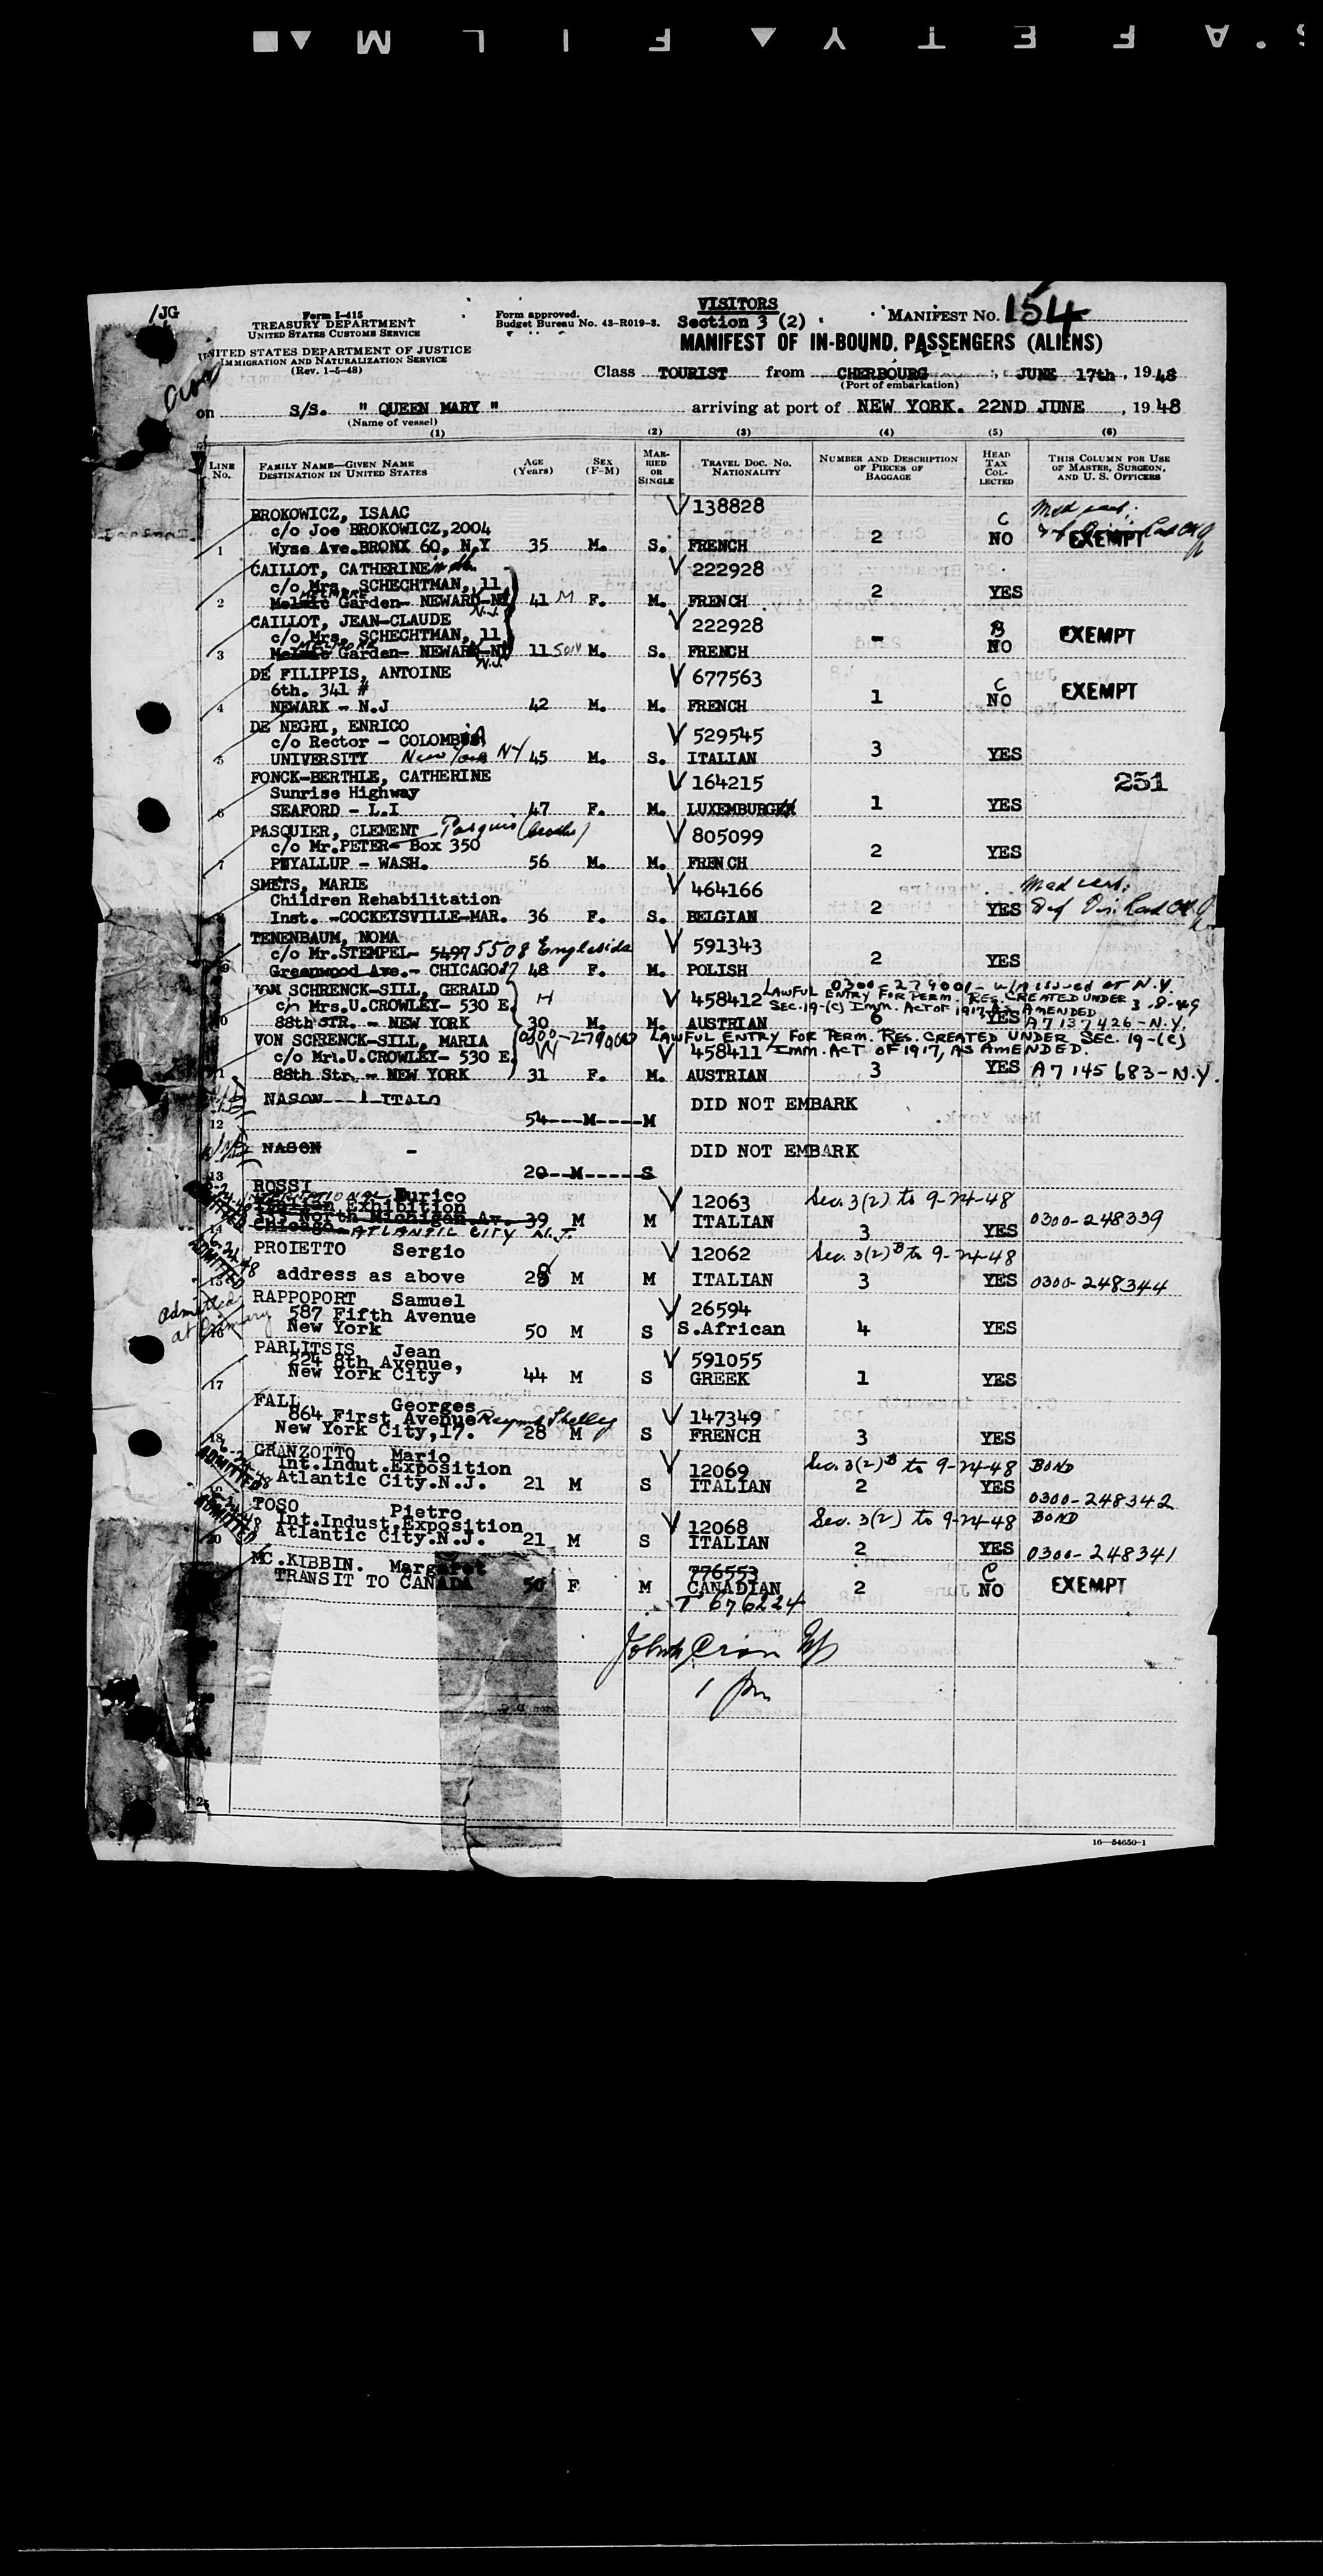 SAFETY FILM
/JG
Form I-415
TREASURY DEPARTMENT
UNITED STATES CUSTOMS SERVICE
UNITED STATES DEPARTMENT OF JUSTICE
IMMIGRATION AND NATURALIZATION SERVICE
(Rev. 1-5-48)
Form approved.
Budget Bureau No. 43-R019-3.
VISITORS
Section 3 (2)
MANIFEST NO. 154
MANIFEST OF IN-BOUND PASSENGERS (ALIENS)
Class TOURIST from CHERBOURG, JUNE 17th, 1948
(Port of embarkation)
on S/S. " QUEEN MARY " arriving at port of NEW YORK. 22ND JUNE, 1948
(Name of vessel)
(1) (2) (3) (4) (5) (6)
LINE NO. FAMILY NAME—GIVEN NAME DESTINATION IN UNITED STATES AGE (Years) SEX (F-M) MARRIED OR SINGLE TRAVEL DOC. NO. NATIONALITY NUMBER AND DESCRIPTION OF PIECES OF BAGGAGE HEAD TAX COLLECTED THIS COLUMN FOR USE OF MASTER, SURGEON, AND U. S. OFFICERS
BROKOWICZ, ISAAC 138828 Med cert.
c/o Joe BROKOWICZ,2004 C
1 Wyse Ave.BRONX 60, N.Y 35 M. S. FRENCH 2 NO EXEMPT
CAILLOT, CATHERINE 222928
c/o Mrs. SCHECHTMAN, 11
2 Garden- NEWARK-NJ 41 M F. M. FRENCH 2 YES
N.J.
CAILLOT, JEAN-CLAUDE 222928
c/o Mrs. SCHECHTMAN, 11 B
3 Garden- NEWARK-NJ 11 son M. S. FRENCH - NO EXEMPT
N.J.
DE FILIPPIS, ANTOINE 677563
6th. 341 # C
4 NEWARK - N.J 42 M. M. FRENCH 1 NO EXEMPT
DE NEGRI, ENRICO 529545
c/o Rector - COLOMBIA
5 UNIVERSITY New York NY 45 M. S. ITALIAN 3 YES
FONCK-BERTHLE, CATHERINE 164215 251
Sunrise Highway
6 SEAFORD - L.I 47 F. M. LUXEMBURGER 1 YES
PASQUIER, CLEMENT Pasquier (brother) 805099
c/o Mr.PETER- Box 350
7 PUYALLUP - WASH. 56 M. M. FRENCH 2 YES
SMETS, MARIE 464166 Med cert.
Children Rehabilitation
Inst. -COCKEYSVILLE-MAR. 36 F. S. BELGIAN 2 YES
TENENBAUM, NOMA 591343
c/o Mr.STEMPEL- 5497 5508 Engleside
9 Greenwood Ave.- CHICAGO 37 48 F. M. POLISH 2 YES
0300-279001- issued at N.Y.
VON SCHRENCK-SILL, GERALD H 458412 LAWFUL ENTRY FOR PERM. RES. CREATED UNDER 3-8-49
c/o Mrs.U.CROWLEY- 530 E. SEC. 19-(C) IMM. ACT OF 1917, AS AMENDED
10 88th STR. - NEW YORK 30 M. M. AUSTRIAN 6 YES A7137426-N.Y.
VON SCHRENCK-SILL, MARIA 0300-279000 LAWFUL ENTRY FOR PERM. RES. CREATED UNDER SEC. 19-(C)
c/o Mrs.U.CROWLEY- 530 E. W 458411 IMM. ACT OF 1917, AS AMENDED.
11 88th Str. - NEW YORK 31 F. M. AUSTRIAN 3 YES A7145683-N.Y.
NASON - ITALO DID NOT EMBARK
12 54---M----M
NASON - DID NOT EMBARK
13 20--M-----S
ROSSI 12063 Sec. 3(2) to 9-24-48
Eurico
Italian Exhibition
14 333 North Michigan Av. 39 M M ITALIAN 3 YES 0300-248339
Chicago ATLANTIC CITY N.J.
ADMITTED
PROIETTO Sergio 12062 Sec. 3(2) B to 9-24-48
15 address as above 28 M M ITALIAN 3 YES 0300-248344
ADMITTED 6-24-48
RAPPOPORT Samuel 26594
587 Fifth Avenue
16 New York 50 M S S.African 4 YES
Admitted at Primary
PARLITSIS Jean 591055
224 8th Avenue,
17 New York City 44 M S GREEK 1 YES
FALL Georges 147349
864 First Avenue Shelley
18 New York City,17. 28 M S FRENCH 3 YES
GRANZOTTO Mario 12069 Sec. 3(2) B to 9-24-48 BOND
Int.Indut.Exposition
Atlantic City.N.J. 21 M S ITALIAN 2 YES 0300-248342
ADMITTED
TOSO Pietro 12068 Sec. 3(2) to 9-24-48 BOND
Int.Indust.Exposition
20 Atlantic City.N.J. 21 M S ITALIAN 2 YES 0300-248341
ADMITTED
MC.KIBBIN. Margaret 776553 C
TRANSIT TO CANADA 50 F M CANADIAN 2 NO EXEMPT
T 676224
1 pm
25
16—54650-1